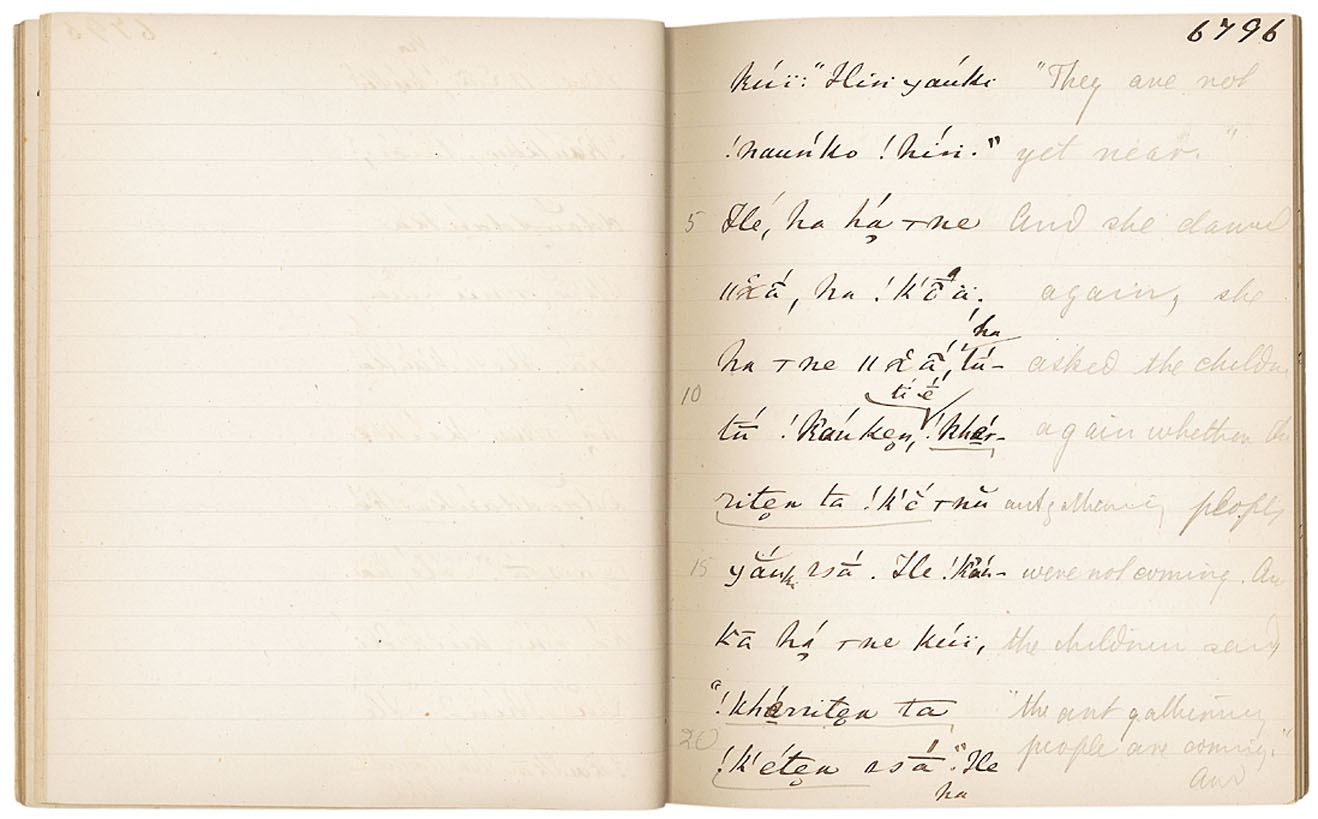 6796
kúï: "Hin yáuki "They are not
!nauńko !hín." yet near."
5 Hé, ha há̤ ┬ne And she danced
ǁxā́, ha !k'ŏä. again, she
ha
ha ┬ne ǁxā́, tú- asked the children
10 ti é
tū́ !kaúken, !khér- again whether the
riten ta !k'é ┬nŭ ant gathering people
15 yáuki ssā́. He !kaú- were not coming. And
kā há̤ ┬ne kúï, the children said
"!khérriten ta "the ant gathering
20 !k'éten ssā́." He people are coming."
ha And